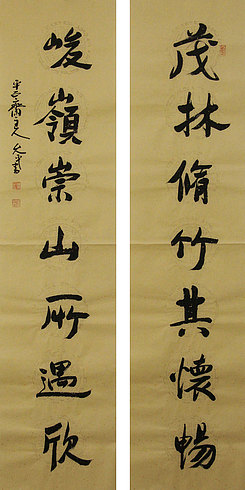 茂林脩竹其懷暢
峻嶺崇山所遇欣
齋主人 書